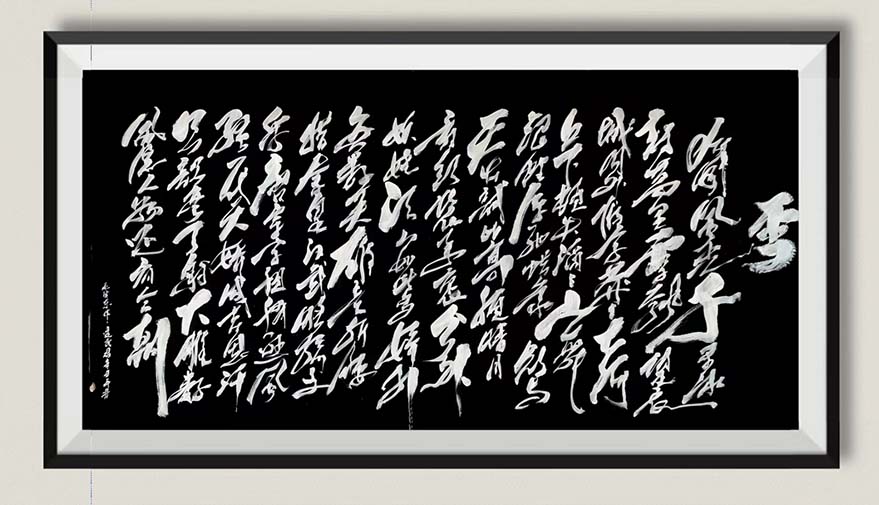 雪
北国风光千里冰
封万里雪飘望长
城内外惟余莽莽大河
上下顿失滔滔山舞
银蛇原驰蜡象欲与
天公试比高须晴日
看红装素裹分外
妖娆江山如此多娇引
无数英雄竞折腰
惜秦皇汉武略输文
采唐宗宋祖稍逊风
骚一代天骄成吉思汗
只识弯弓射大雕数
风流人物还看今朝